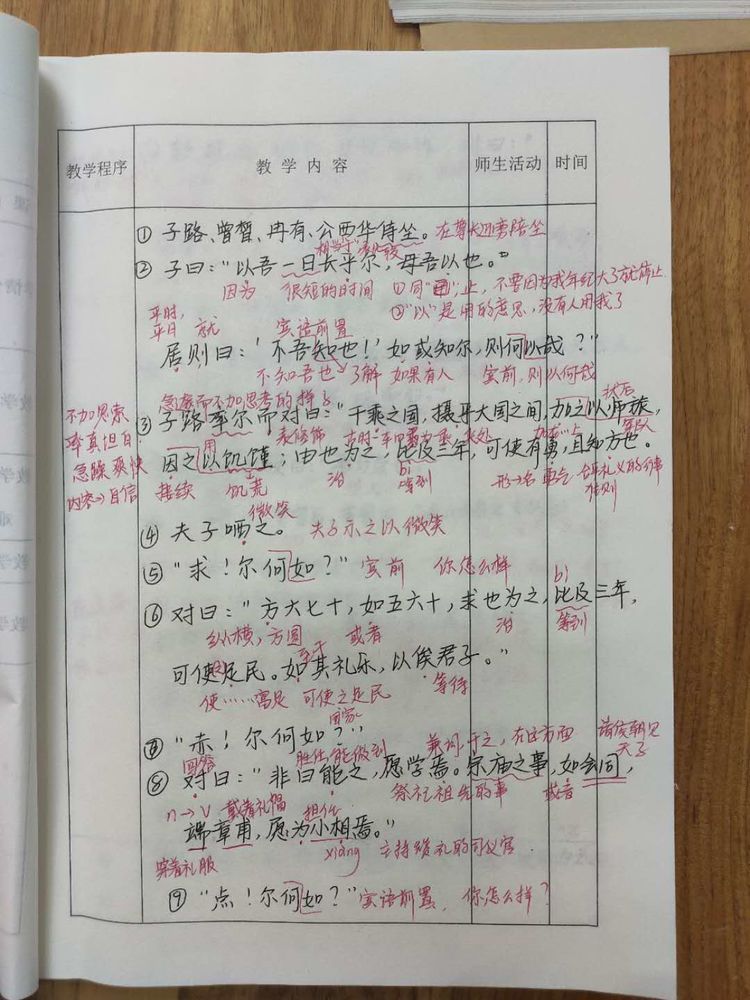 教学程序 教学内容 师生活动 时间
① 子路、曾皙、冉有、公西华侍坐。在尊长近旁陪坐
② 子曰："以吾一日长乎尔，毋吾以也。"
因为 很短的时间 ①同"已"，止，不要因为我年纪大了就停止
平时，
平日 就 宾语前置 ②"以"是用的意思，没有人用我了
居则曰：'不吾知也！'如或知尔，则何以哉？"
不知吾也 了解 如果有人 宾前，则以何哉
急遽而不加思考的样子
不加思索
率真坦白
急躁爽快
内容→自信
③ 子路率尔而对曰："千乘之国，摄乎大国之间，加之以师旅，
用 表修饰 状后
军队
因之以饥馑；由也为之，比及三年，可使有勇，且知方也。
接续 饥荒 治 bì
等到 形→名 勇气
准则
微笑
④ 夫子哂之。 夫子示之以微笑
⑤ "求！尔何如？" 宾前 你怎么样
⑥ 对曰："方六七十，如五六十，求也为之，比及三年，
bì
纵横，方圆 或者 治 等到
至于
可使足民。如其礼乐，以俟君子。"
使……富足 可使之足民 等待
⑦ "赤！尔何如？"
回答 胜任 能做到 兼词 于之，在这方面 诸侯朝见
天子
⑧ 对曰："非曰能之，愿学焉。宗庙之事，如会同，
祭祀祖先的事 或者
n→v 戴着礼帽 担任
端章甫，愿为小相焉。"
穿着礼服 xiàng 主持
⑨ "点！尔何如？" 宾语前置，你怎么样？